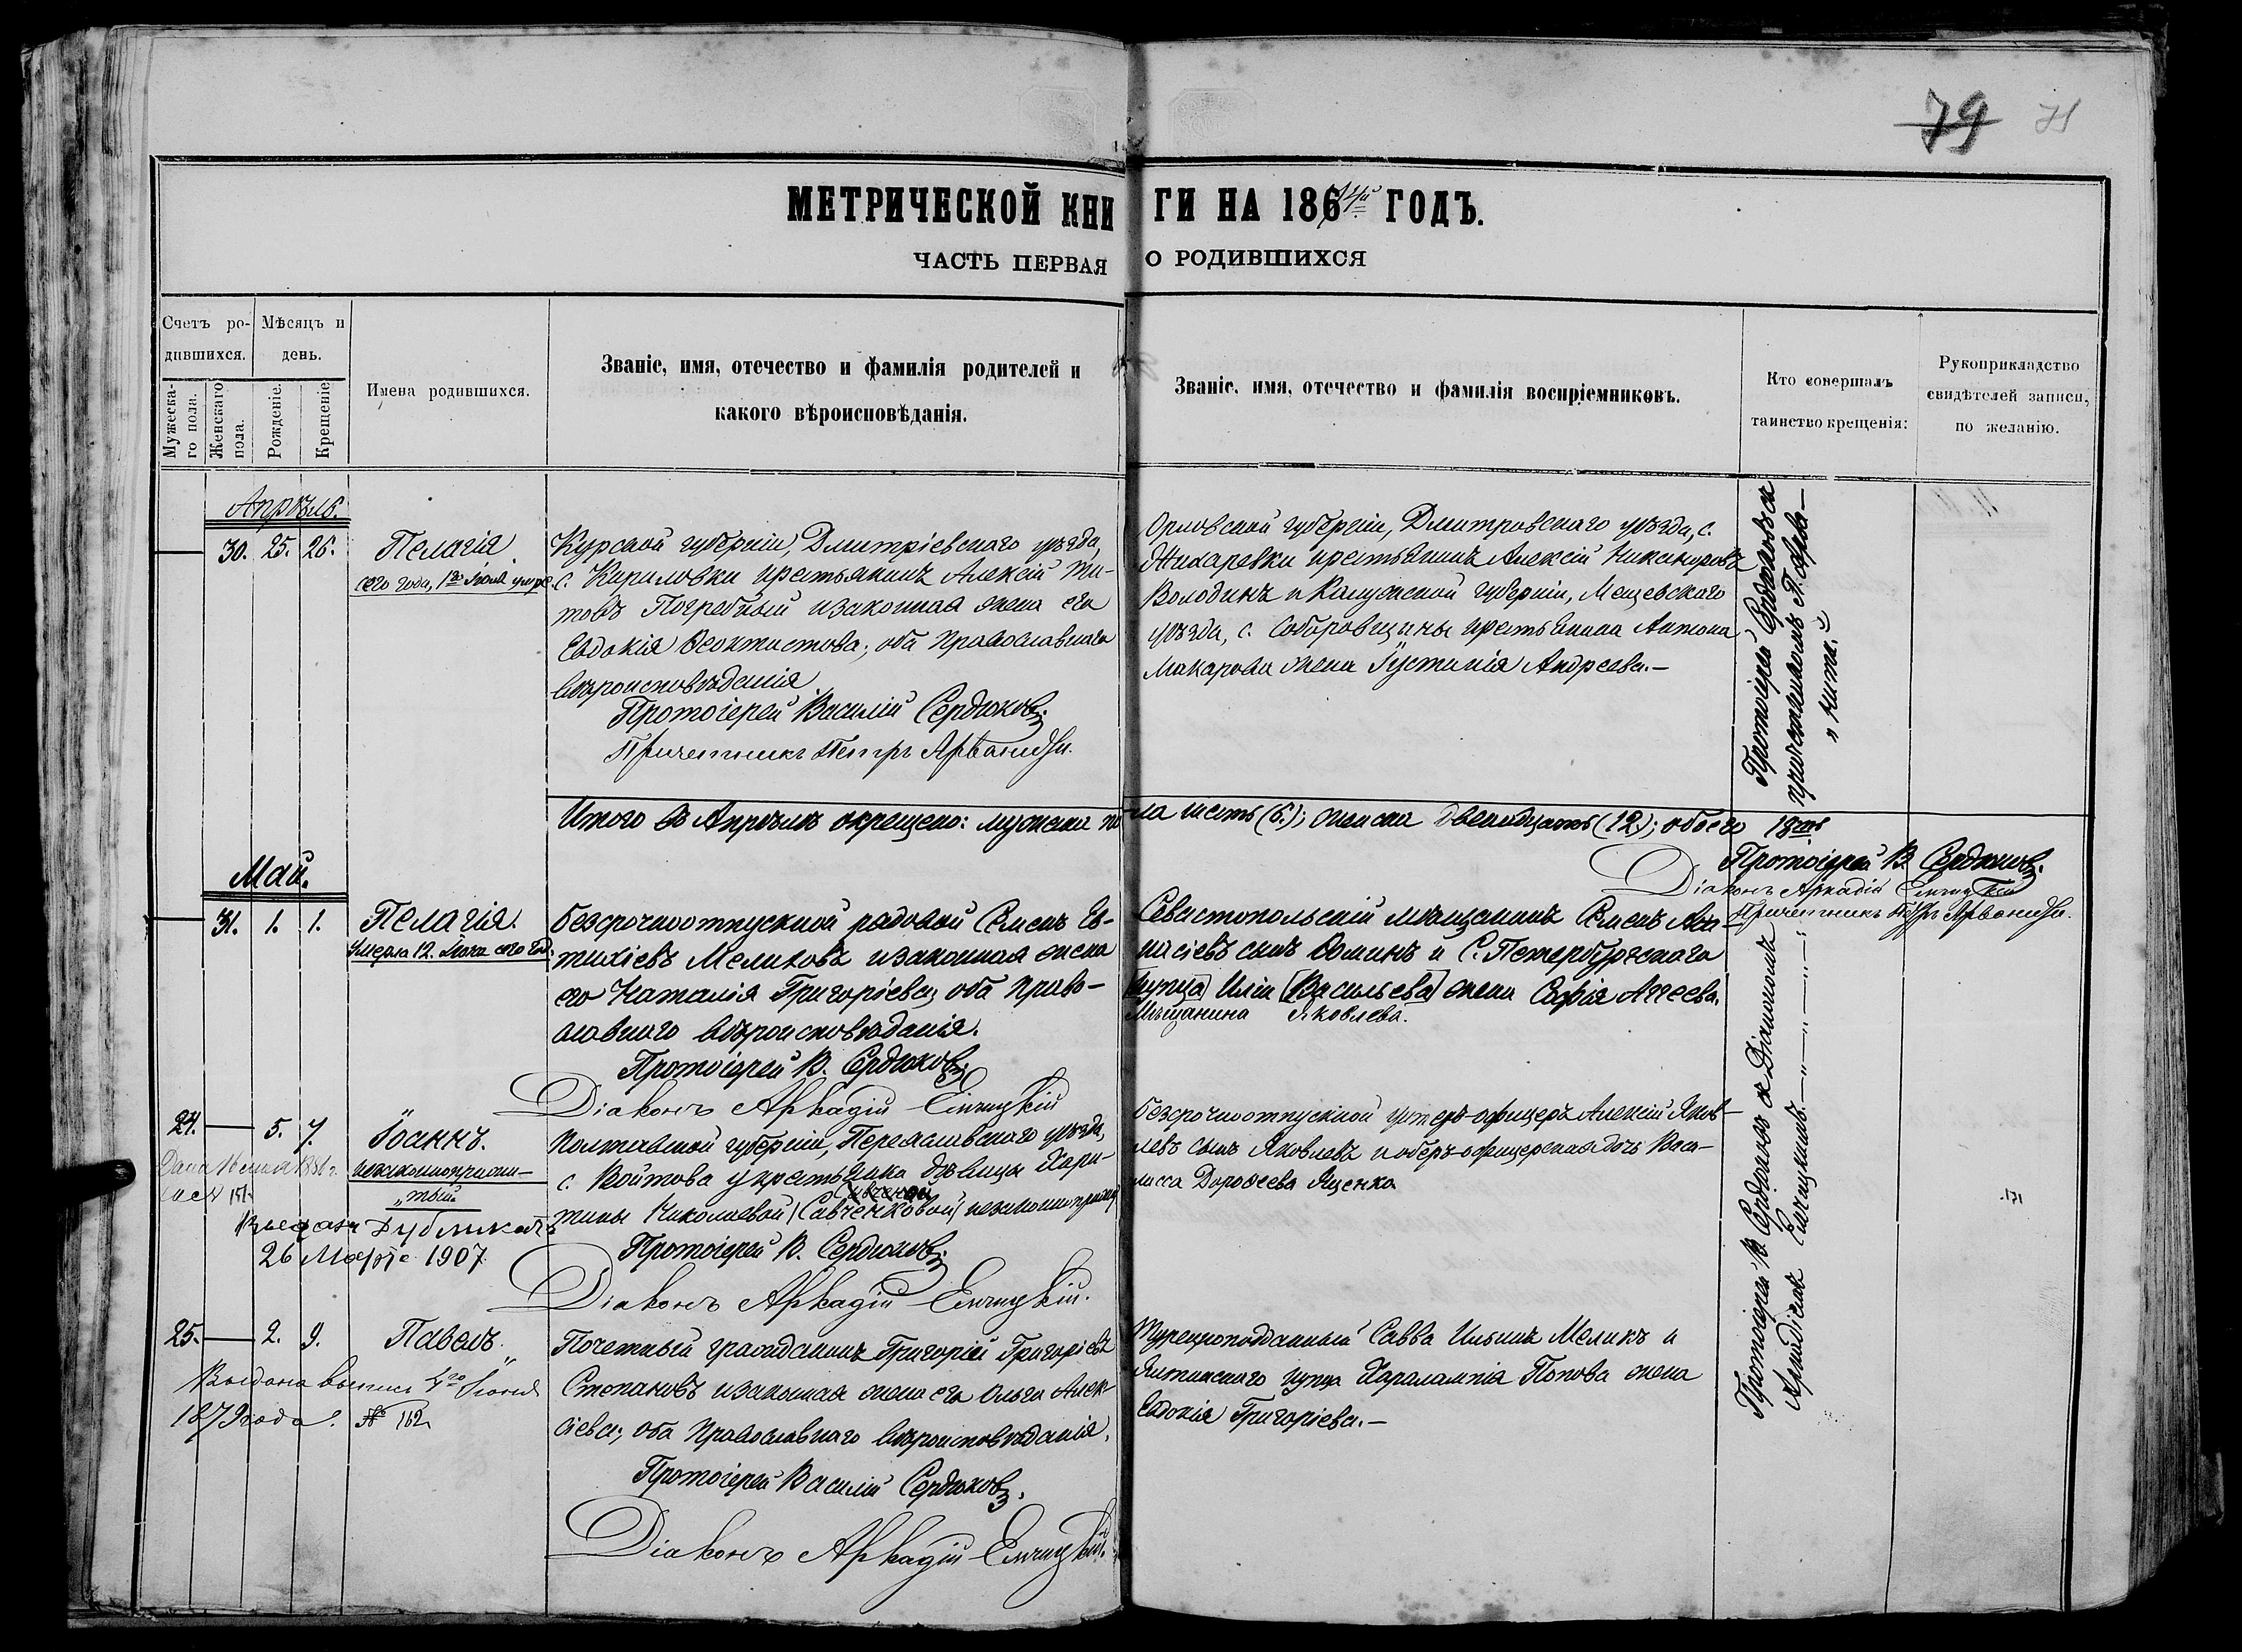 79 71
МЕТРИЧЕСКОЙ КНИГИ НА 1874й ГОДЪ.
ЧАСТЬ ПЕРВАЯ О РОДИВШИХСЯ
Счетъ родившихся.
Мужескаго пола.
Женскаго пола.
Мѣсяцъ и день.
Рожденіе.
Крещеніе.
Имена родившихся.
Званіе, имя, отечество и фамилія родителей и
какого вѣроисповѣданія.
Званіе, имя, отечество и фамилія воспріемниковъ.
Кто совершалъ
таинство крещенія:
Рукоприкладство
свидѣтелей записи,
по желанію.
Апрѣль.
30. 25. 26.
Пелагія
сего года, 1го Іюля умре
Курской губерніи, Дмитріевскаго уѣзда,
с. Кириловки крестьянинъ Алексій Ти-
товъ Погребный и законная жена его
Евдокія Ѳеоктистова; оба православнаго
вѣроисповѣданія
Протоіерей Василій Сердюковъ
Причетникъ Петръ Арваниди.
Орловской губерніи, Дмитровскаго уѣзда, с.
Жихаревки крестьянинъ Алексій Никаноровъ
Володинъ и Калужской губерніи, Мещевскаго
уѣзда, с. Соборовщины крестьянина Антона
Макарова жена Іустинія Андреева.—
Протоіерей Сердюковъ съ
причетникомъ П. Арва-
ниди.
Итого въ Апрѣлѣ окрещено: мужеска пола шесть (6.); женска двенадцать (12.); обоего 18ть
Протоіерей В. Сердюковъ.
Діаконъ Аркадій Енчицкій
Причетникъ Петръ Арваниди.
Май.
31. 1. 1.
Пелагія.
Умерла 12. Іюля сего год.
Безсрочноотпускной рядовой Семенъ Ев-
тихіевъ Мелиховъ и законная жена
его Наталія Григоріева; оба право-
славнаго вѣроисповѣданія.
Протоіерей В. Сердюковъ
Діаконъ Аркадій Енчицкій
Севастопольскій мѣщанинъ Семенъ Аѳа-
насіевъ сынъ Ѳоминъ и С. Петербургскаго
[купца] Иліи [Васильева] жена Софія Аггеева.
Мѣщанина Яковлева.
24. 5. 7.
Іоаннъ.
незаконноприжи-
тый
Дана 16 мая 1886 г.
за № 151.
Выданъ Дубликатъ
26 Марта 1907
Полтавской губерніи, Переяславскаго уѣзда,
с. Войтова у крестьянки дѣвицы Хари-
тины Николаевой (Савченковой) незаконноприжит
Протоіерей В. Сердюковъ
Діаконъ Аркадій Енчицкій.
Безсрочноотпускной унтеръ-офицеръ Алексій Яков-
левъ сынъ Яковлевъ и оберъ-офицерская дочь Васи-
лисса Дороѳеева Яценко
171
25. 2. 9.
Павелъ.
Выдана выпись 4го Іюня
1879 года. № 162
Почетный гражданинъ Григорій Григоріевъ
Степановъ и законная жена его Ольга Алек-
сіева; оба православнаго вѣроисповѣданія.
Протоіерей Василій Сердюковъ.
Діаконъ Аркадій Енчицкій.
Турецкоподданный Савва Ильинъ Меликъ и
Ялтинскаго купца Харалампія Попова жена
Евдокія Григоріева.—
Протоіерей В. Сердюковъ съ Діакономъ
Аркадіемъ Енчицкимъ.